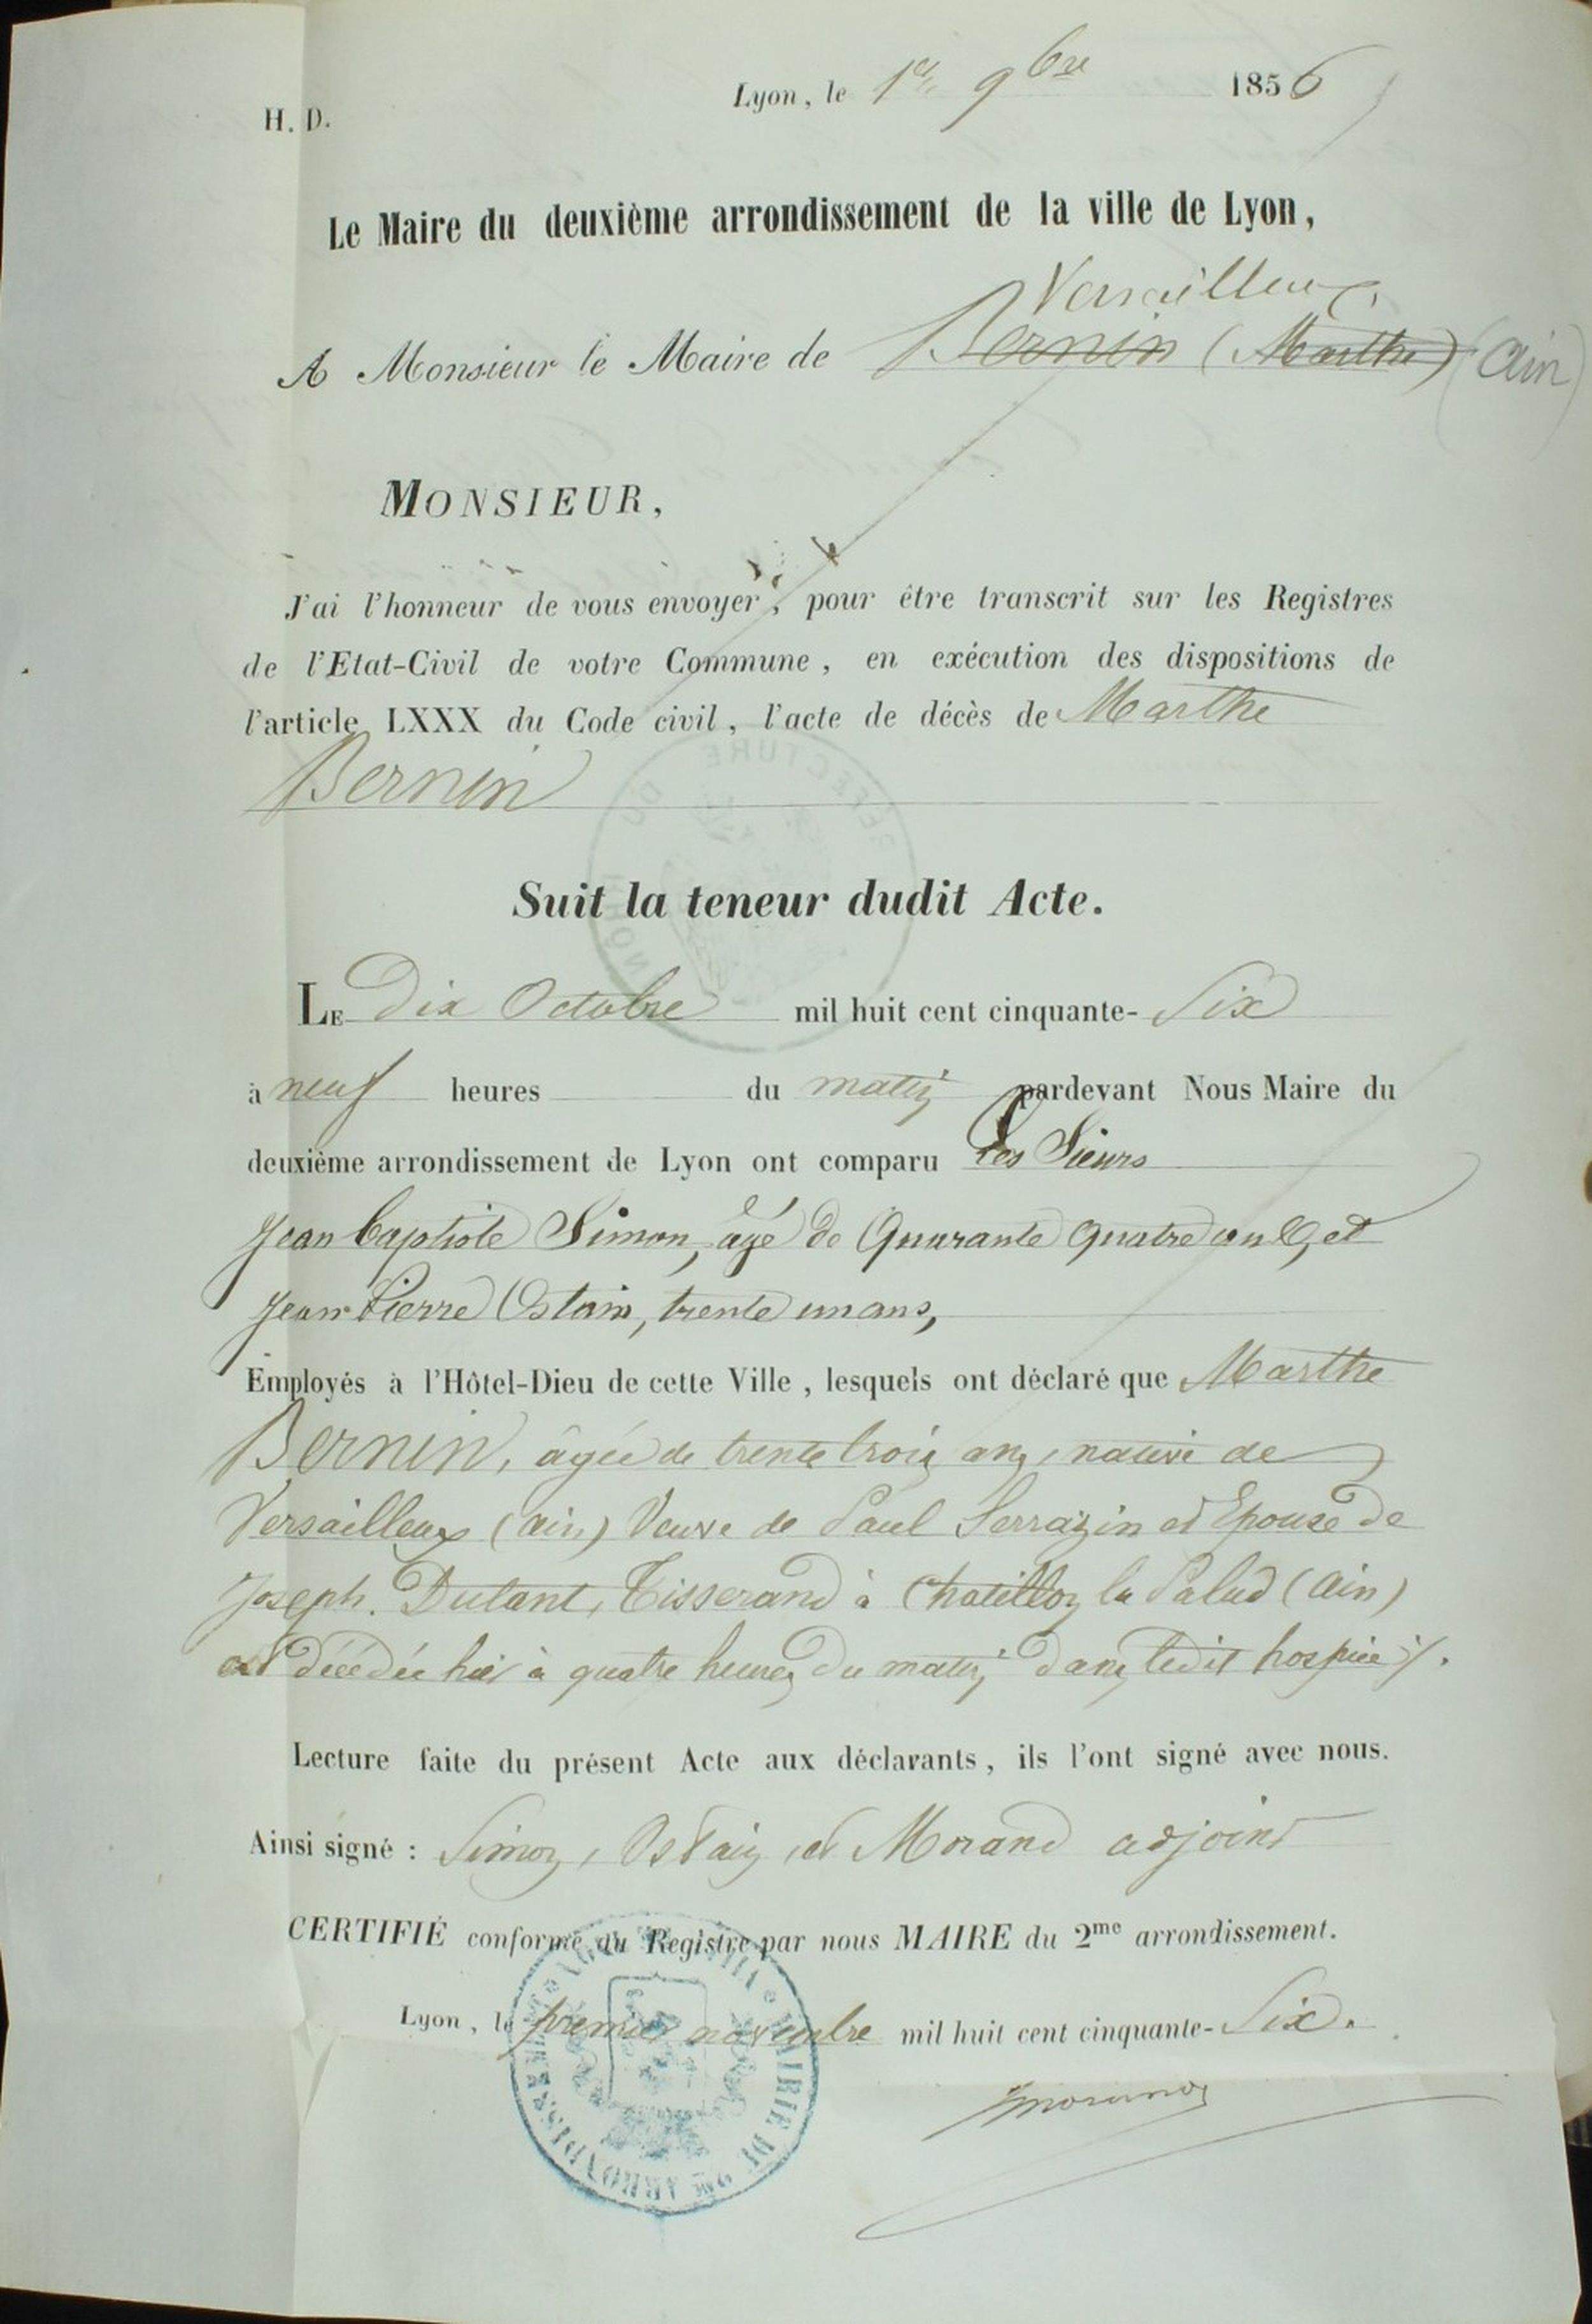 Lyon, le 1er 9bre 1856
H. D.
Le Maire du deuxième arrondissement de la ville de Lyon,
Versailleux
A Monsieur le Maire de Bernin (Marthe) (Ain)
MONSIEUR,
J'ai l'honneur de vous envoyer, pour être transcrit sur les Registres
de l'Etat-Civil de votre Commune, en exécution des dispositions de
l'article LXXX du Code civil, l'acte de décès de Marthe
Bernin
Suit la teneur dudit Acte.
LE Dix Octobre mil huit cent cinquante-Six
à neuf heures du matin pardevant Nous Maire du
deuxième arrondissement de Lyon ont comparu Les Sieurs
Jean Baptiste Simon, âgé de Quarante Quatre ans, et
Jean Pierre Ostain, trente un ans,
Employés à l'Hôtel-Dieu de cette Ville, lesquels ont déclaré que Marthe
Bernin, âgée de trente trois ans, native de
Versailleux (ain) Veuve de Paul Serrazin et Epouse de
Joseph Dutant, Tisserand à Chatillon la Palud (ain)
est décédée hier à quatre heures du matin dans ledit hospice ./.
Lecture faite du présent Acte aux déclarants, ils l'ont signé avec nous.
Ainsi signé : Simon, Ostain, et Morand adjoint
CERTIFIÉ conforme au Registre par nous MAIRE du 2me arrondissement.
Lyon, le premier novembre mil huit cent cinquante-Six.
Morand
MAIRIE DU 2ME ARRONDISSEMENT